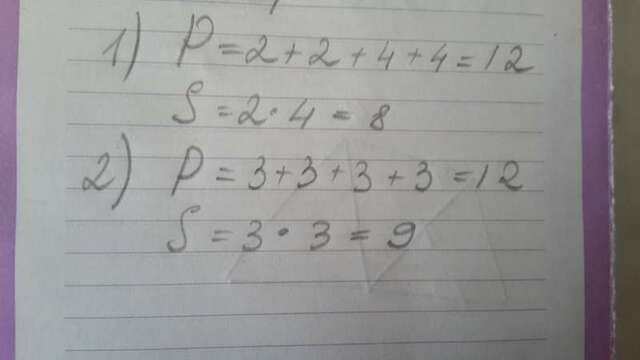 1) P = 2 + 2 + 4 + 4 = 12
S = 2 · 4 = 8
2) P = 3 + 3 + 3 + 3 = 12
S = 3 · 3 = 9